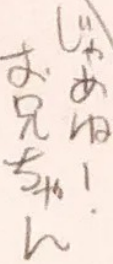 じゃあねー、
お兄ちゃん